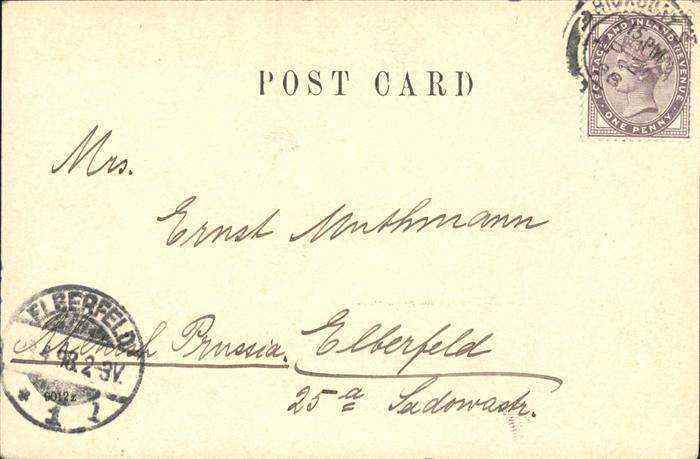 POST CARD
POSTAGE AND INLAND REVENUE
ONE PENNY
Mrs.
Ernst Muthmann
Rhenish Prussia. Elberfeld
25a Sadowastr.
ELBERFELD
1 l